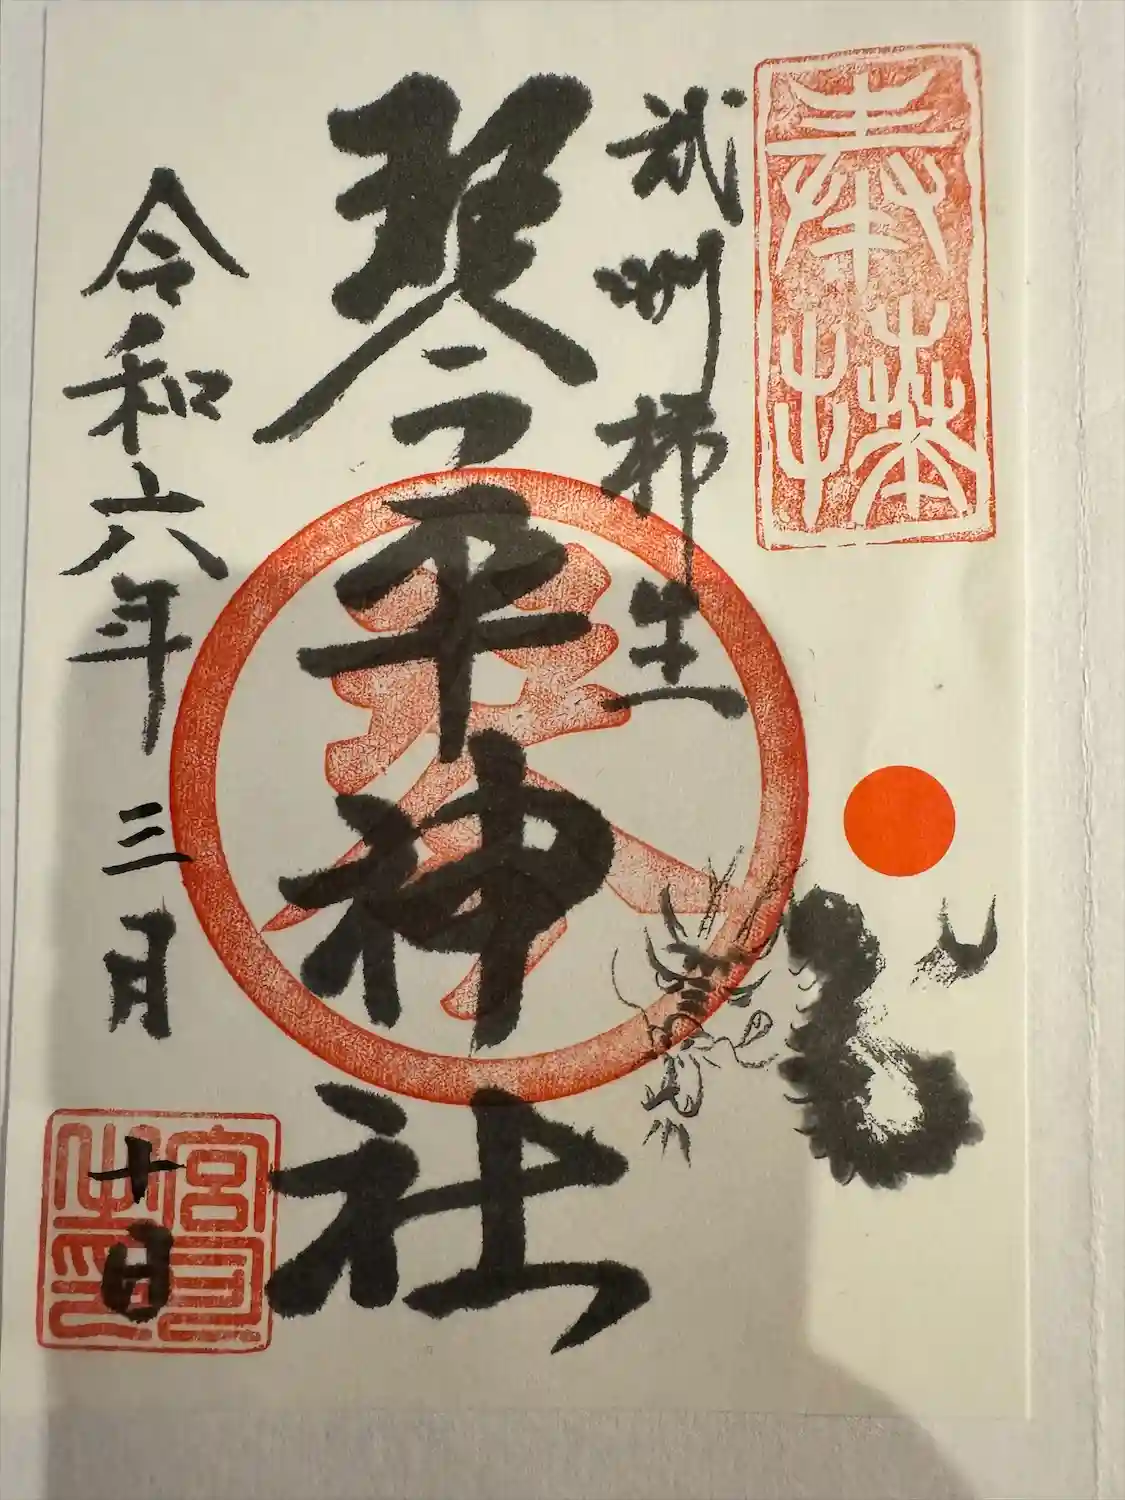 奉拝
武州柿生
琴平神社
令和六年三月十日
宮司之印